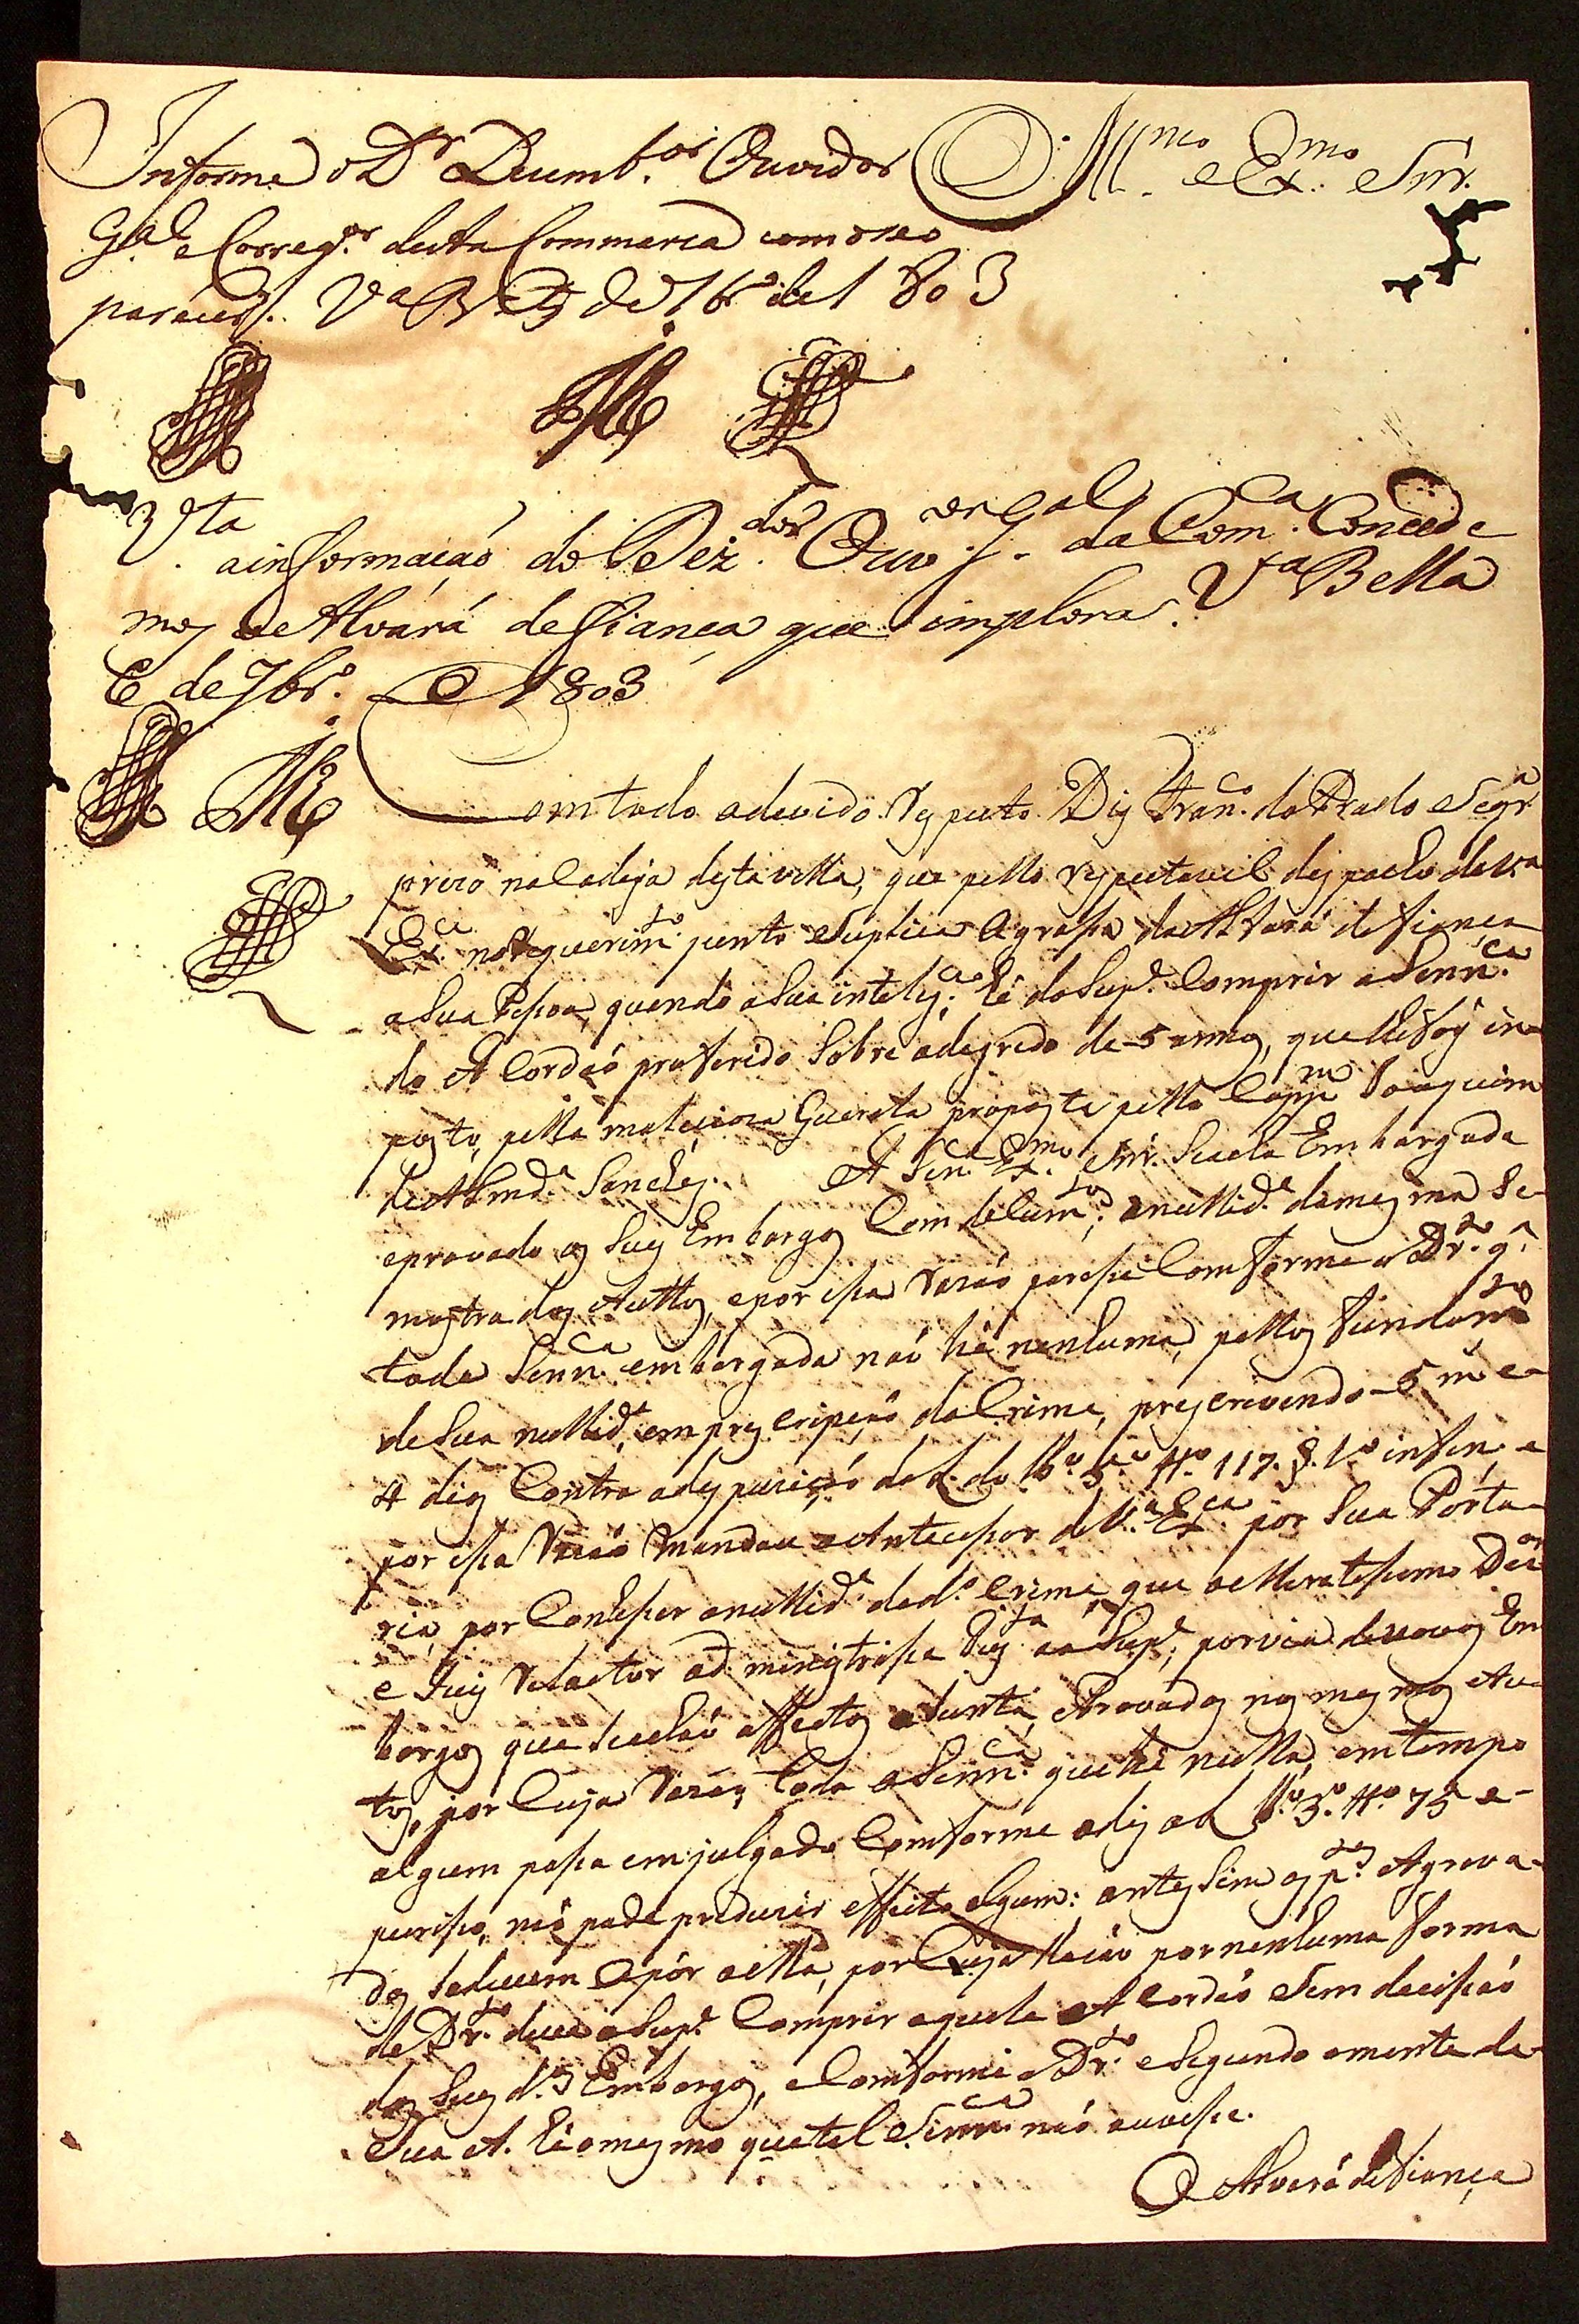 Informe o Dr Dezemb.or Ouvidor
G.al e Correg.or desta Commarca com o seo
parecer. V.a B.a de 7br.o de 1803
Ill.mo e Ex.mo Snr.
V.ta
a informação do Dez.dor Ouv.or G.al da Com.ca Concede
mos o Alvará de fiança que implora. V.a Bella
6 de 7br.o de 1803
Com todo o devido respeito Diz Fran.co do Prado e Seq.ra
prezo na Cadeya desta villa, que pello respeitavel despacho de V.a
Ex.ca no requerim.to junto Suplica a graça do Alvará de fiança
a Sua Pessoa, quando a Sua intelig.ca hé do Sup.e Comprir a Senn.ca
do Acordaó proferido Sobre o degredo de 5 annos, que lhe foy im-
posto, pella maliciosa Querella proposta pello Capp.m Joaquim
de Almd.a Sanches. A Senn.ca Ex.mo Snr. Se acha Embargada
e provado os Seus Embargos Com delum.to, a nullid.e da mesma Se
mostra dos Auttos, e por essa razaó parece Comforme a Dr.to q.
toda Senn.ca embargada naó hé nenhuma, pellos fundam.tos
de Sua nullid.e, em prescripçaó do Crime, prescrevendo 5 m. e
4 dias Contra a desposiçaó da L. do Lb.o 5.o tt.o 117. §. 1.o in fin. e
por essa razaó mandou o Antecessor de V.a Ex.ca por Sua Porta-
ria, por Conhesser a nullid.e do d.o Crime, que o Meretissimo Dez.or
e Juiz Relactor ad menistrasse Just.a ao Sup.e, por via de novos Em
bargos que Se achaó affectos a Junta, e Provados nos mesmos Au-
tos, por Cuja razaó, toda a Senn.ca que hé nulla, em tempo
algum passa em julgado Comforme a dis a L. Lb.o 3.o tt.o 75 e
por isso, naó pode produzir effeito algum: antes Sim os p.tes Agrava-
dos Se devem opór a ella, por Cuja razaó por nenhuma forma
de Dr.to deve o Sup.e Comprir aquele Acordaó Sem decissaó
dos Seus d.os Embargos, e Comforme a Dr.to e Segundo a mente de
Sua A. hé o mesmo que tal Senn.ca naó ouvesse.
O Alvará de fiança